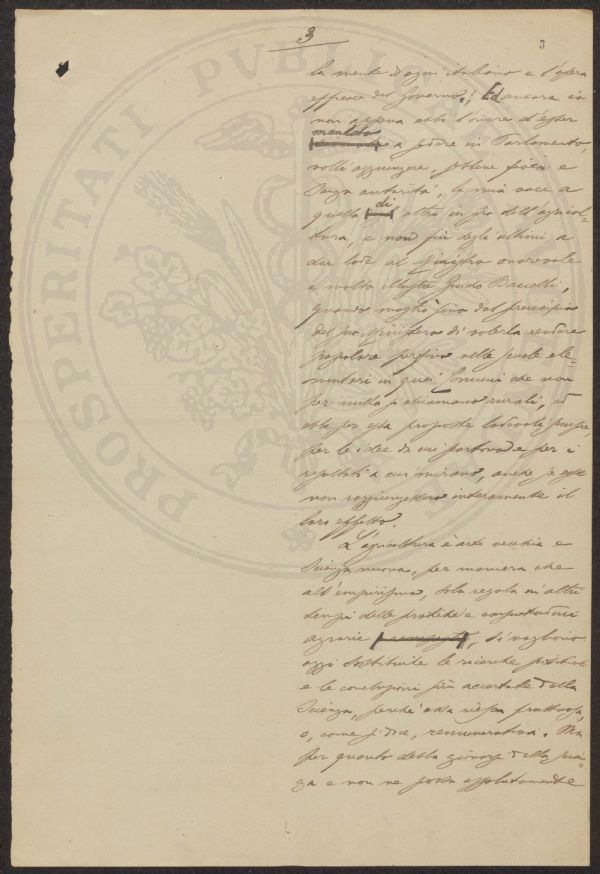 3
3
la mente d'ogni italiano e l'opera
efficace del Governo; Ed ancora io
non appena ebbi l'onore d'esser
mandato
a sedere in Parlamento,
volli aggiungere, sebbene fioca e
senza autorità, la mia voce a
quella di altri in pro dell'agricol=
tura, e non fui degli ultimi a
dar lode al Ministro onorevole
e molto illustre Guido Baccelli,
quando mostrò fino dal principio
del suo Ministero di volerla rendere
popolare perfino nelle scuole ele=
mentari in quei Comuni che non
per nulla si chiamano rurali, ed
ebbi per esse proposte lodevoli sempre,
per le idee da cui partono e per i
resultati a cui mirano, anche se esse
non raggiungessero interamente il
loro effetto.
L'agricoltura è arte vecchia e
scienza nuova, per maniera che
all'empirismo, sola regola in altri
tempi delle pratiche e consuetudini
agrarie, si vogliono
oggi sostituite le ricerche positive
e le conclusioni più accertate della
Scienza, perché essa riesca fruttuosa,
o, come si dice, remunerativa. Ma
per quanto debba giovarsi della scien=
za e non ne possa assolutamente
PROSPERITATI PVBLICAE